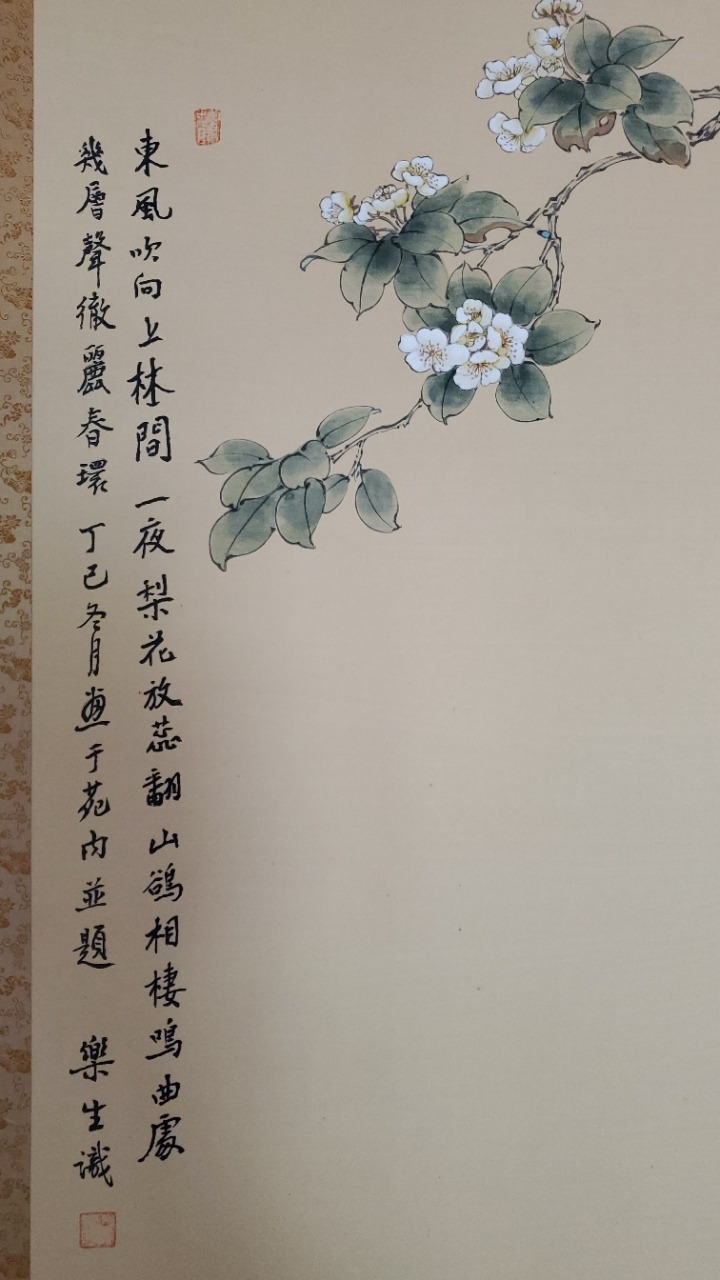 東風吹向上林間一夜梨花放蕊翻山鵒相棲鳴曲處
幾層聲徹麗春環丁己冬月畫于苑内並題
樂生識